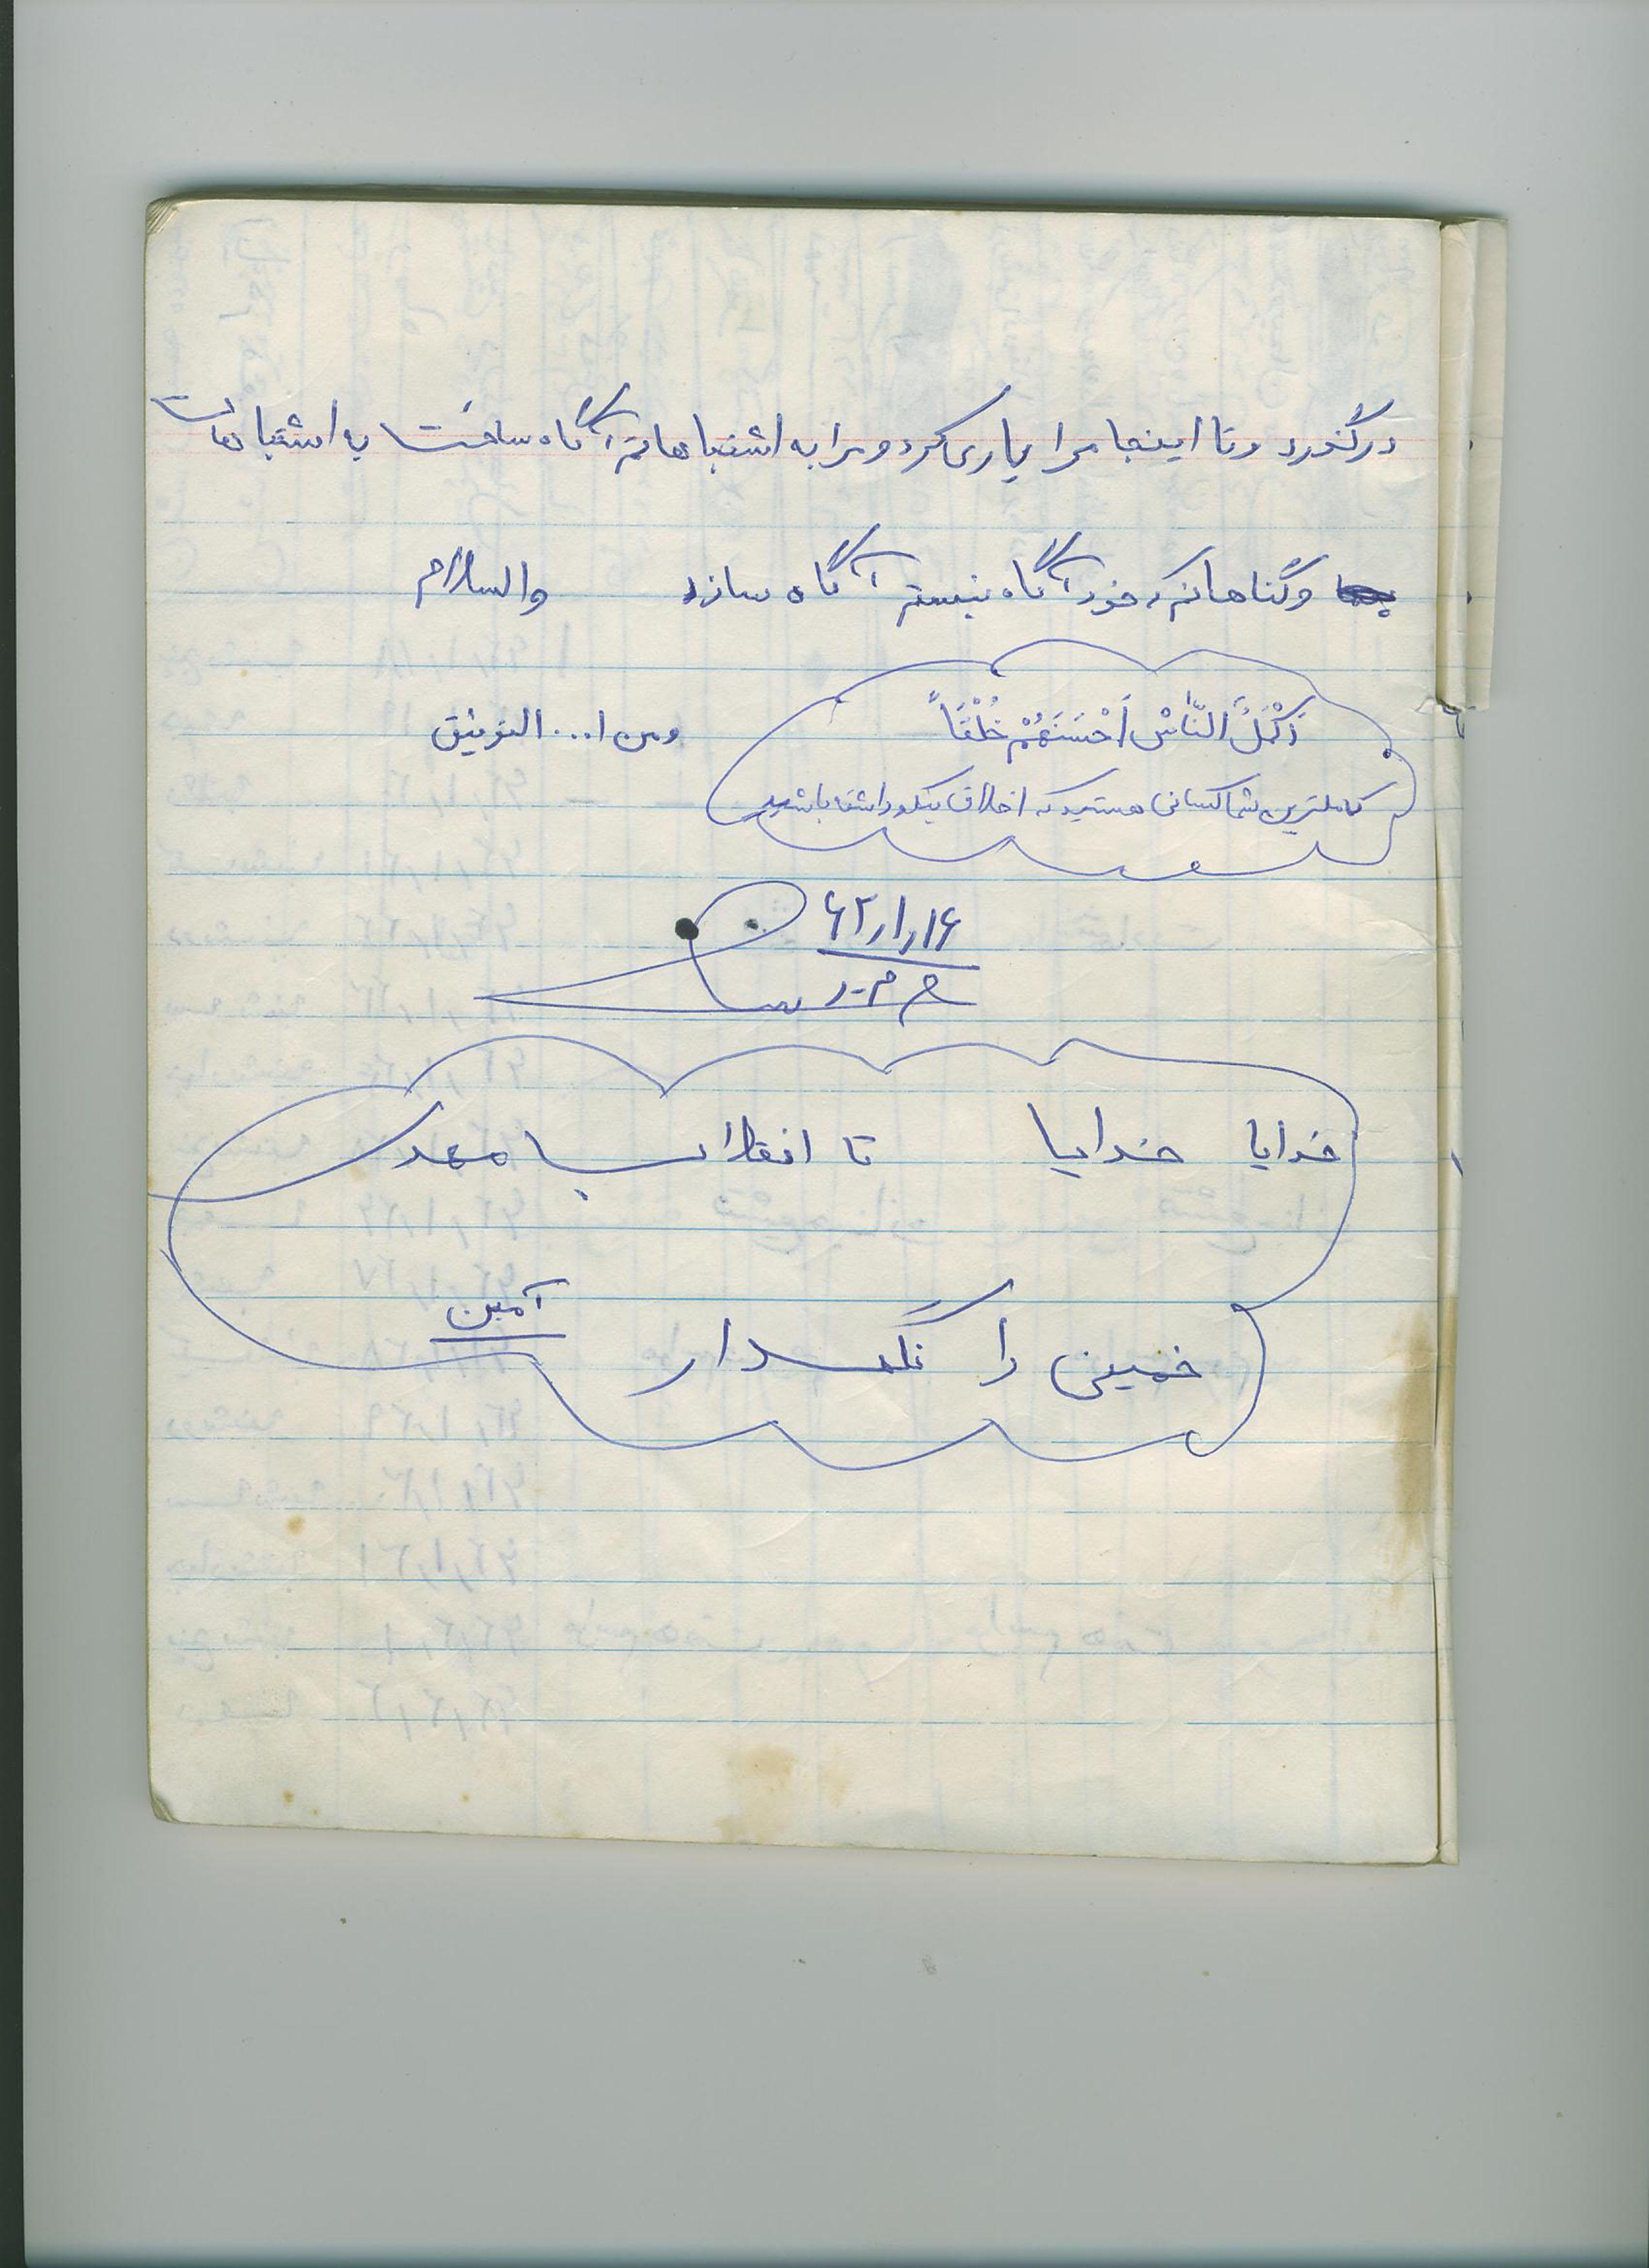 درگذرد و تا اینجا مرا یاری کرد و مرا به اشتباهاتم آگاه ساخت به اشتباهات
و گناهانم که خود آگاه نیستم آگاه سازد والسلام
اَكْمَلُ النّاسْ اَحْسَنَهُمْ خُلْقَاً
ومن ا... التوفیق
کاملترین شما کسانی هستید که اخلاق نیکو داشته باشید
۶۲٫۱٫۱۶
خدایا خدایا تا انقلاب مهدی
خمینی را نگهدار
آمین